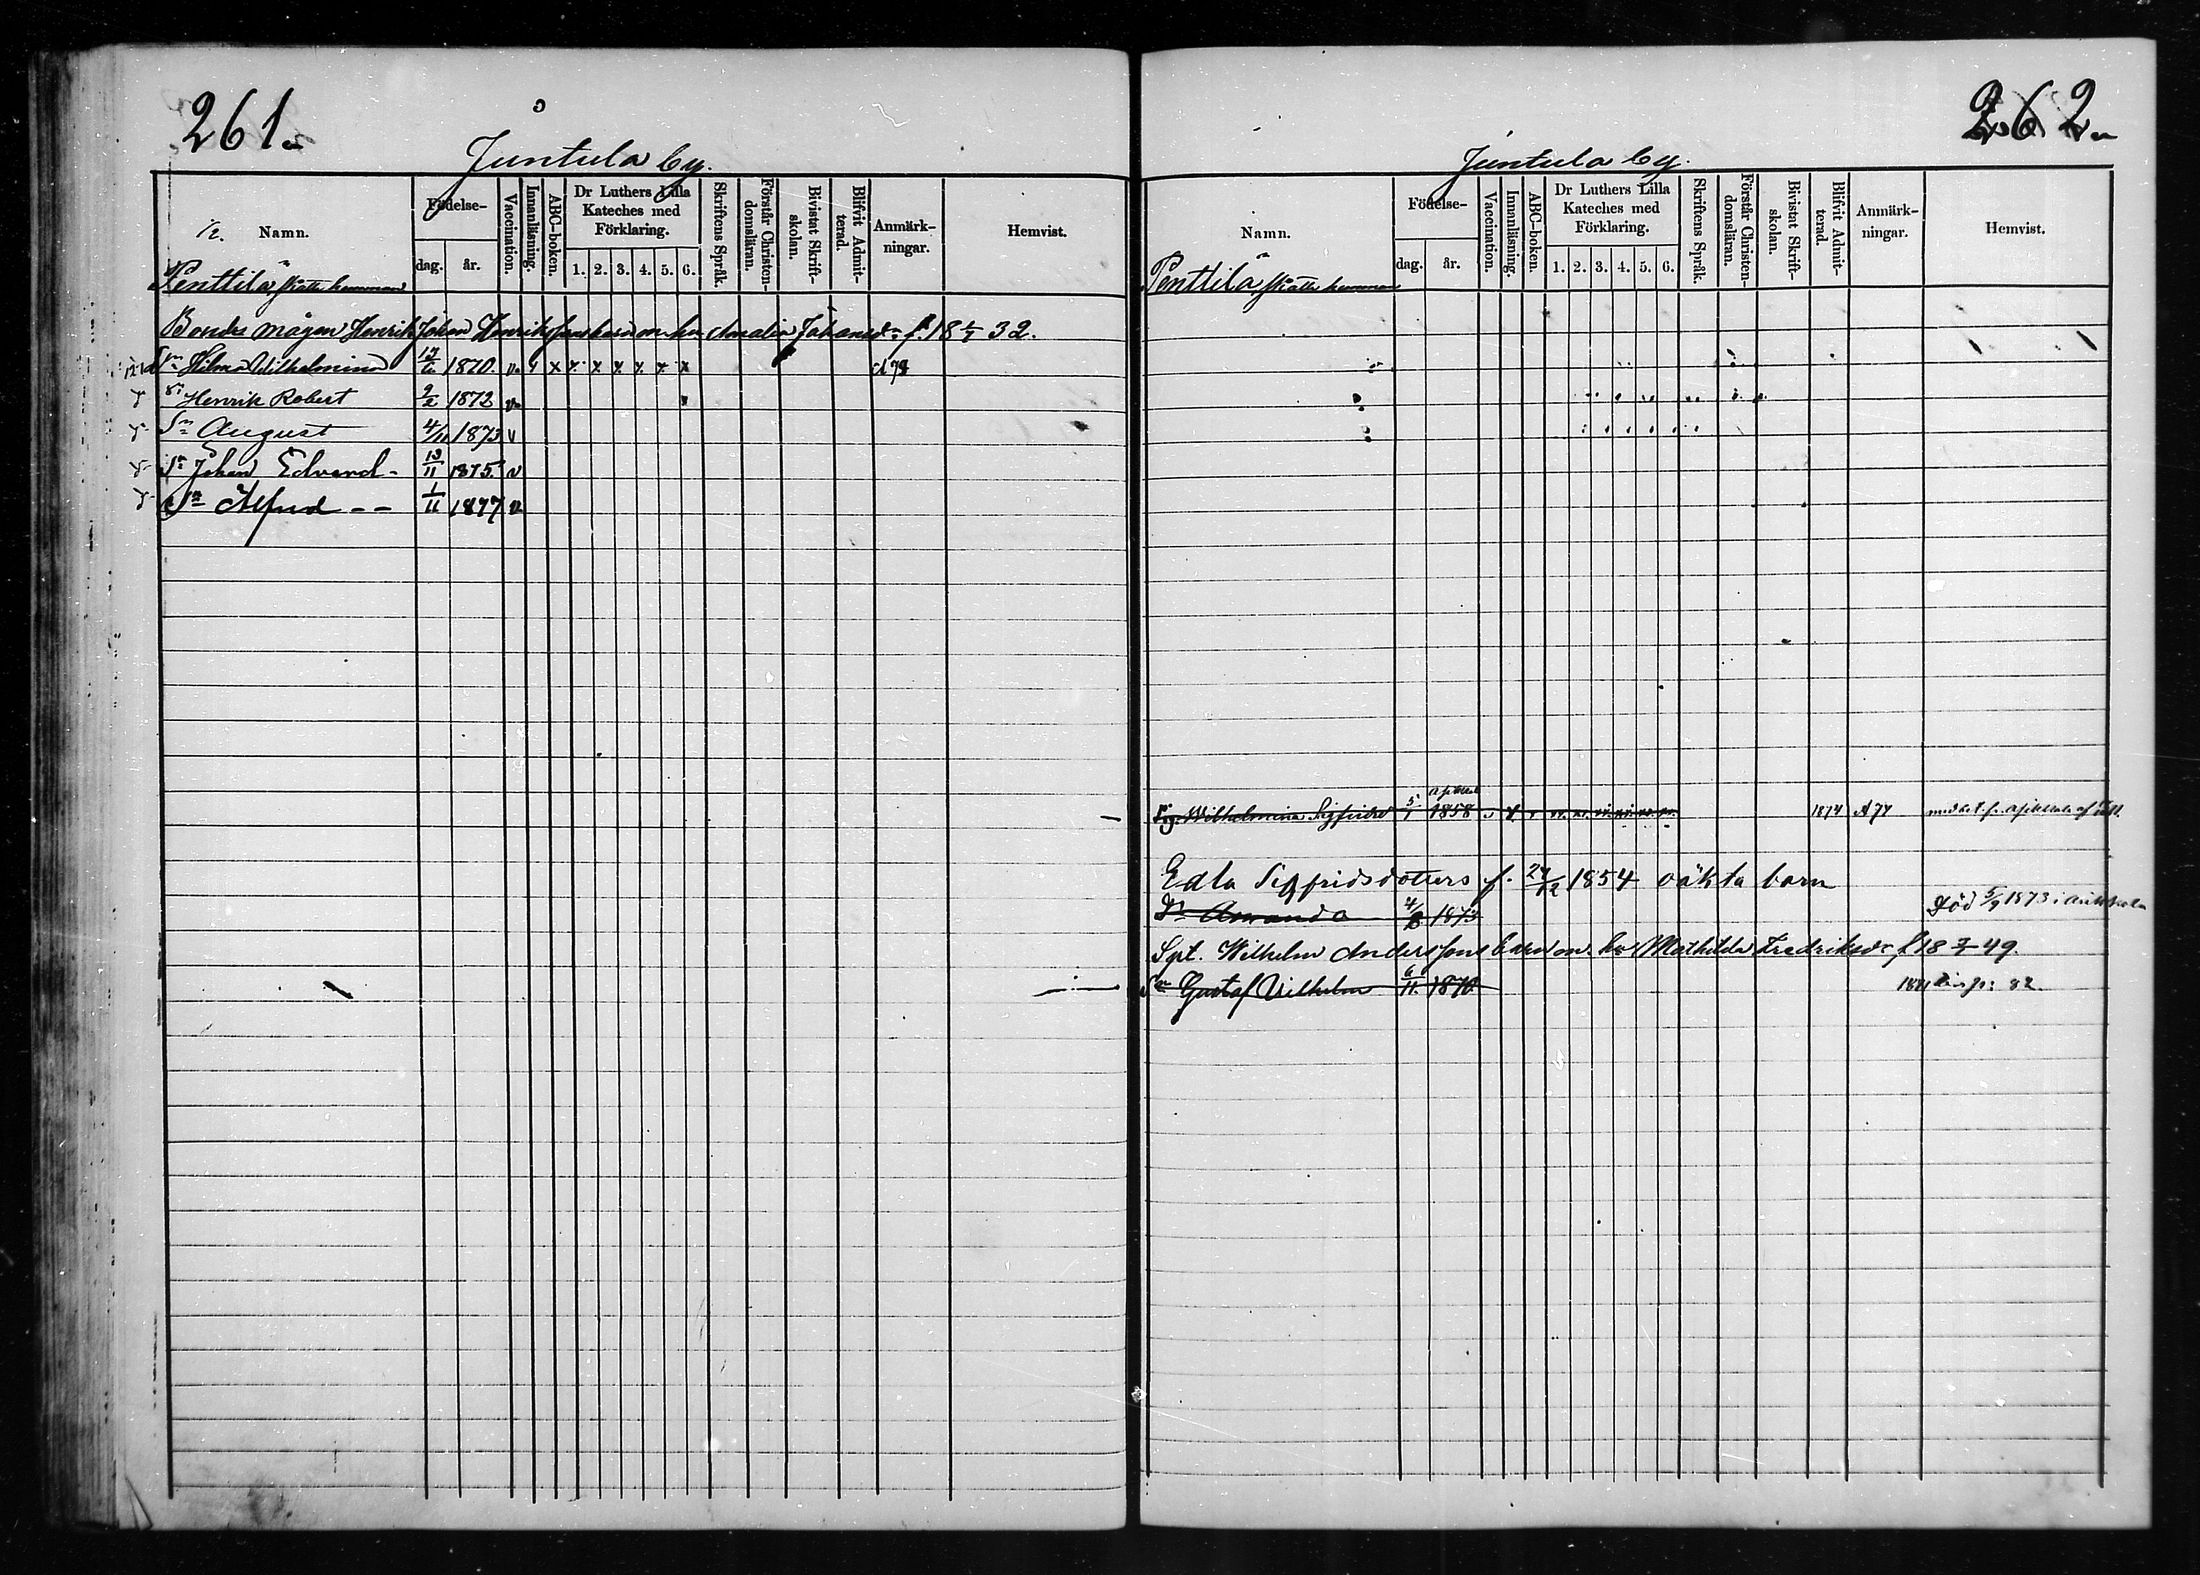 261.
Juntula by.
Namn.
Födelse-
dag. år.
Vaccination.
Innanläsning.
ABC-boken.
Dr Luthers Lilla
Kateches med
Förklaring.
1. 2. 3. 4. 5. 6.
Skriftens Språk.
Förstår Christen-
domsläran.
Bivistat Skrift-
skolan.
Blifvit Admit-
terad.
Anmärk-
ningar.
Hemvist.
½.
Penttilä skatte hemman
Bonde mågen Henrik Johan Henrikssons barn m. hu. Amalia Johansdr f. 18 32.
Hilma Wilhelmina 1870. v. x x x x x x
Henrik Robert 9/2 1872 v
Sn August 4/11 1873 v
Sn Johan Edvard - 13/11 1875 v
Sn Alfred - - 1/11 1877 v
262
Juntula by.
Namn.
Födelse-
dag. år.
Vaccination.
Innanläsning.
ABC-boken.
Dr Luthers Lilla
Kateches med
Förklaring.
1. 2. 3. 4. 5. 6.
Skriftens Språk.
Förstår Christen-
domsläran.
Bivistat Skrift-
skolan.
Blifvit Admit-
terad.
Anmärk-
ningar.
Hemvist.
Penttilä skatte hemman
Pig. Wilhelmina Sigfridsd 5/1 1858 1874 A 77
Edla Sigfridsdotters f. 27/12 1854 oäkta barn
Dr Amanda 4/8 1873 Död 5/9 1873 i
Spt. Wilhelm Anderssons barn m. hu Mathilda Fredriksdr f. 18 49.
Sn Gustaf Vilhelm 6/11. 1870. 1881 82